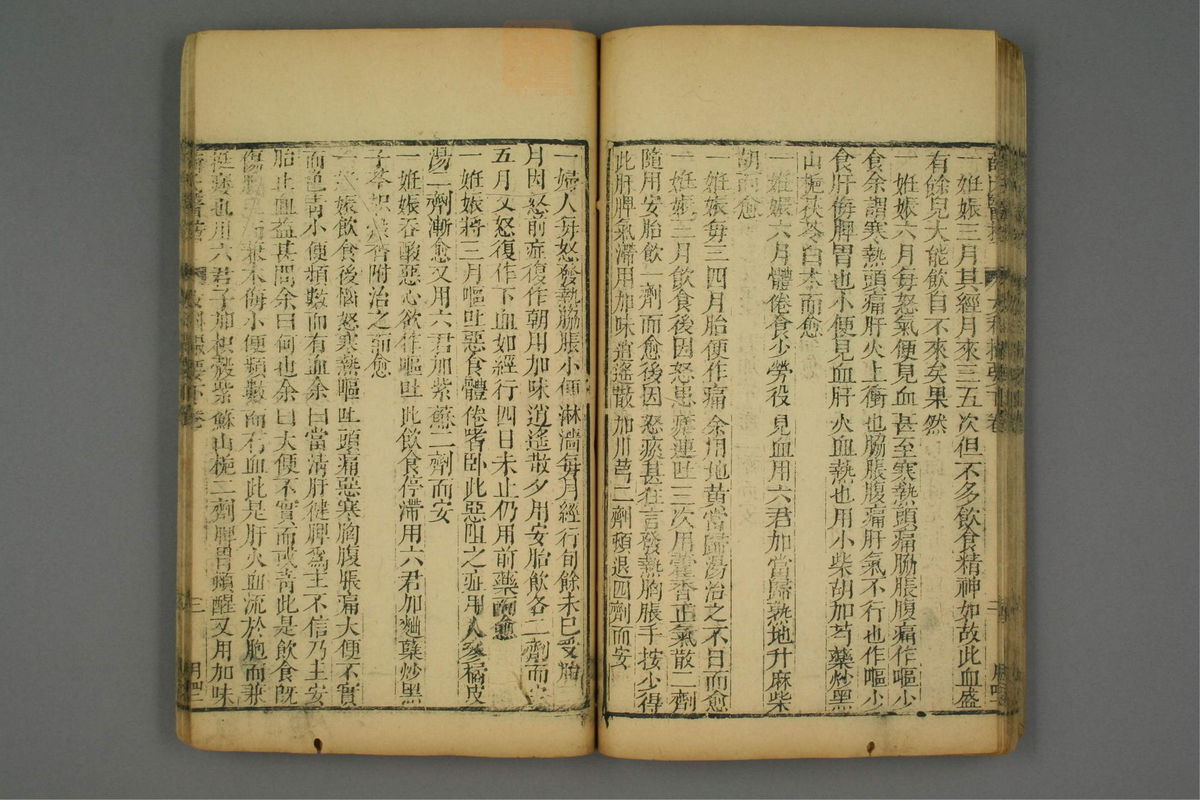 一妊娠三月其經月來三五次但不多飲食精神如故此血盛
有餘兒大能飲自不來矣果然
一妊娠六月每怒氣便見血甚至寒熱頭痛脇脹腹痛作嘔少
食余謂寒熱頭痛肝火上衝也脇脹腹痛肝氣不行也作嘔少
食肝侮脾胃也小便見血肝火血熱也用小柴胡加芍藥炒黑
山梔茯苓白朮而愈
一妊娠六月體倦食少勞役見血用六君加當歸熟地升麻柴
胡而愈
一妊娠每三四月胎便作痛余用地黃當歸湯治之不日而愈
一妊娠三月飲食後因怒患瘧連吐三次用藿香正氣散二劑
隨用安胎飲一劑而愈後因怒痰甚狂言發熱胸脹手按少得
此肝脾氣滯用加味逍遙散加川芎二劑頓退四劑而安
一婦人每怒發熱脇脹小便淋瀝每月經行旬餘未已受胎
月因怒前症復作朝用加味逍遙散夕用安胎飲各二劑而
五月又怒復作下血如經行四日未止仍用前藥而愈
一妊娠將三月嘔吐惡食體倦嗜卧此惡阻之症用人參橘皮
湯二劑漸愈又用六君加紫蘇二劑而安
一妊娠吞酸惡心欲作嘔吐此飲食停滯用六君加麯蘗炒黑
子芩枳殼香附治之而愈
一妊娠飲食後惱怒寒熱嘔吐頭痛惡寒胸腹脹痛大便不實
而色青小便頻數而有血余曰當清肝健脾爲主不信乃主安
胎止血益甚問余曰何也余曰大便不實而或青此是飲食既
傷脾土而兼木侮小便頻數而有血此是肝火血流於胞而兼
挺痿也用六君子加枳殼紫蘇山梔二劑脾胃頓醒又用加味